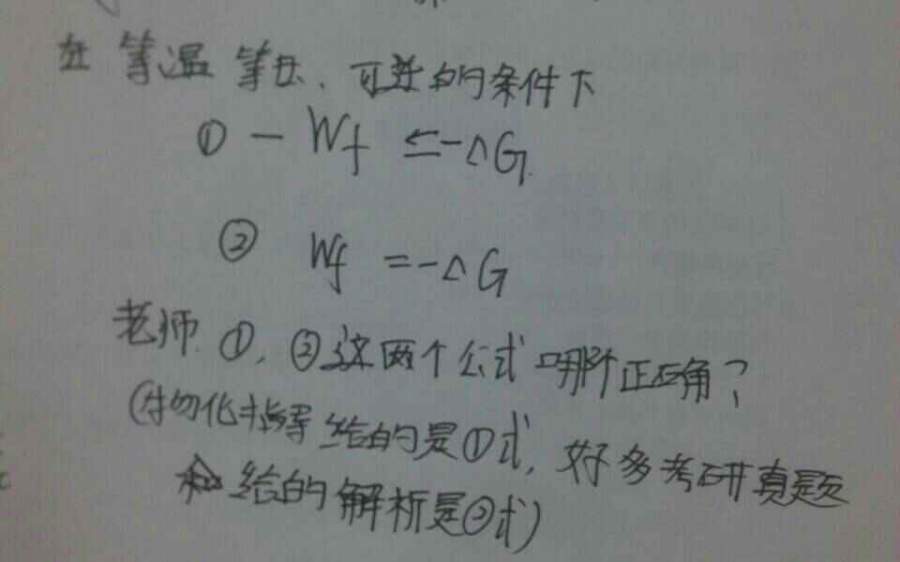 在等温等压、可逆的条件下
① - Wf ≤ -△G
② Wf = -△G
老师.①,②这两个公式哪个正确?
(物化指导给的是①式,好多考研真题
给的解析是②式)